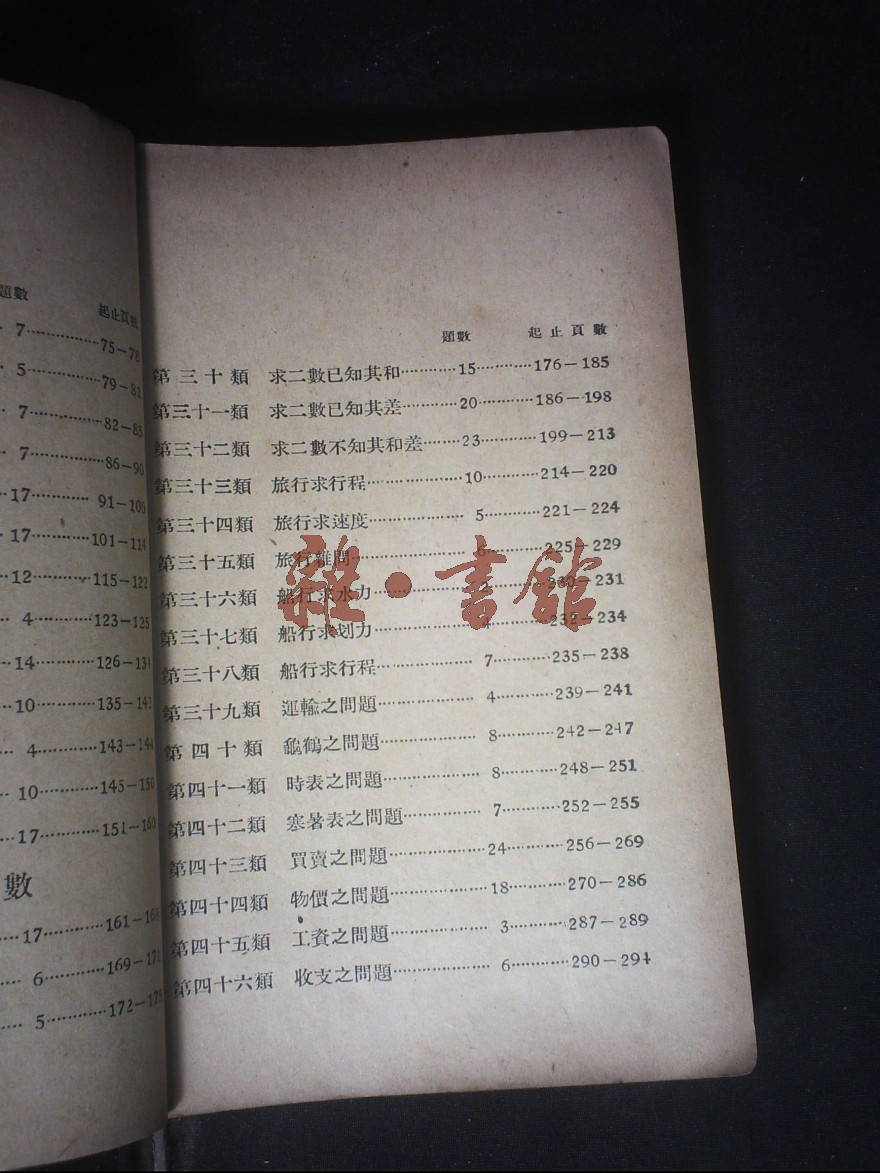 題數 起止頁數
7············75—78
5············79—81
7············82—85
7············86—90
17············91—100
17············101—114
12············115—122
4············123—125
14············126—134
10············135—142
4············143—144
10············145—150
17············151—160
數
17············161—168
6············169—171
5············172—175
題數 起止頁數
第三十類 求二數已知其和············15············176—185
第三十一類 求二數已知其差············20············186—198
第三十二類 求二數不知其和差······23············199—213
第三十三類 旅行求行程············10············214—220
第三十四類 旅行求速度············5············221—224
第三十五類 旅行雜問············6············225—229
第三十六類 船行求水力············230—231
第三十七類 船行求划力············232—234
第三十八類 船行求行程············7············235—238
第三十九類 運輸之問題············4············239—241
第四十類 龜鶴之問題············8············242—247
第四十一類 時表之問題············8············248—251
第四十二類 寒暑表之問題············7············252—255
第四十三類 買賣之問題············24············256—269
第四十四類 物價之問題············18············270—286
第四十五類 工資之問題············3············287—289
第四十六類 收支之問題············6············290—294
雜·書館